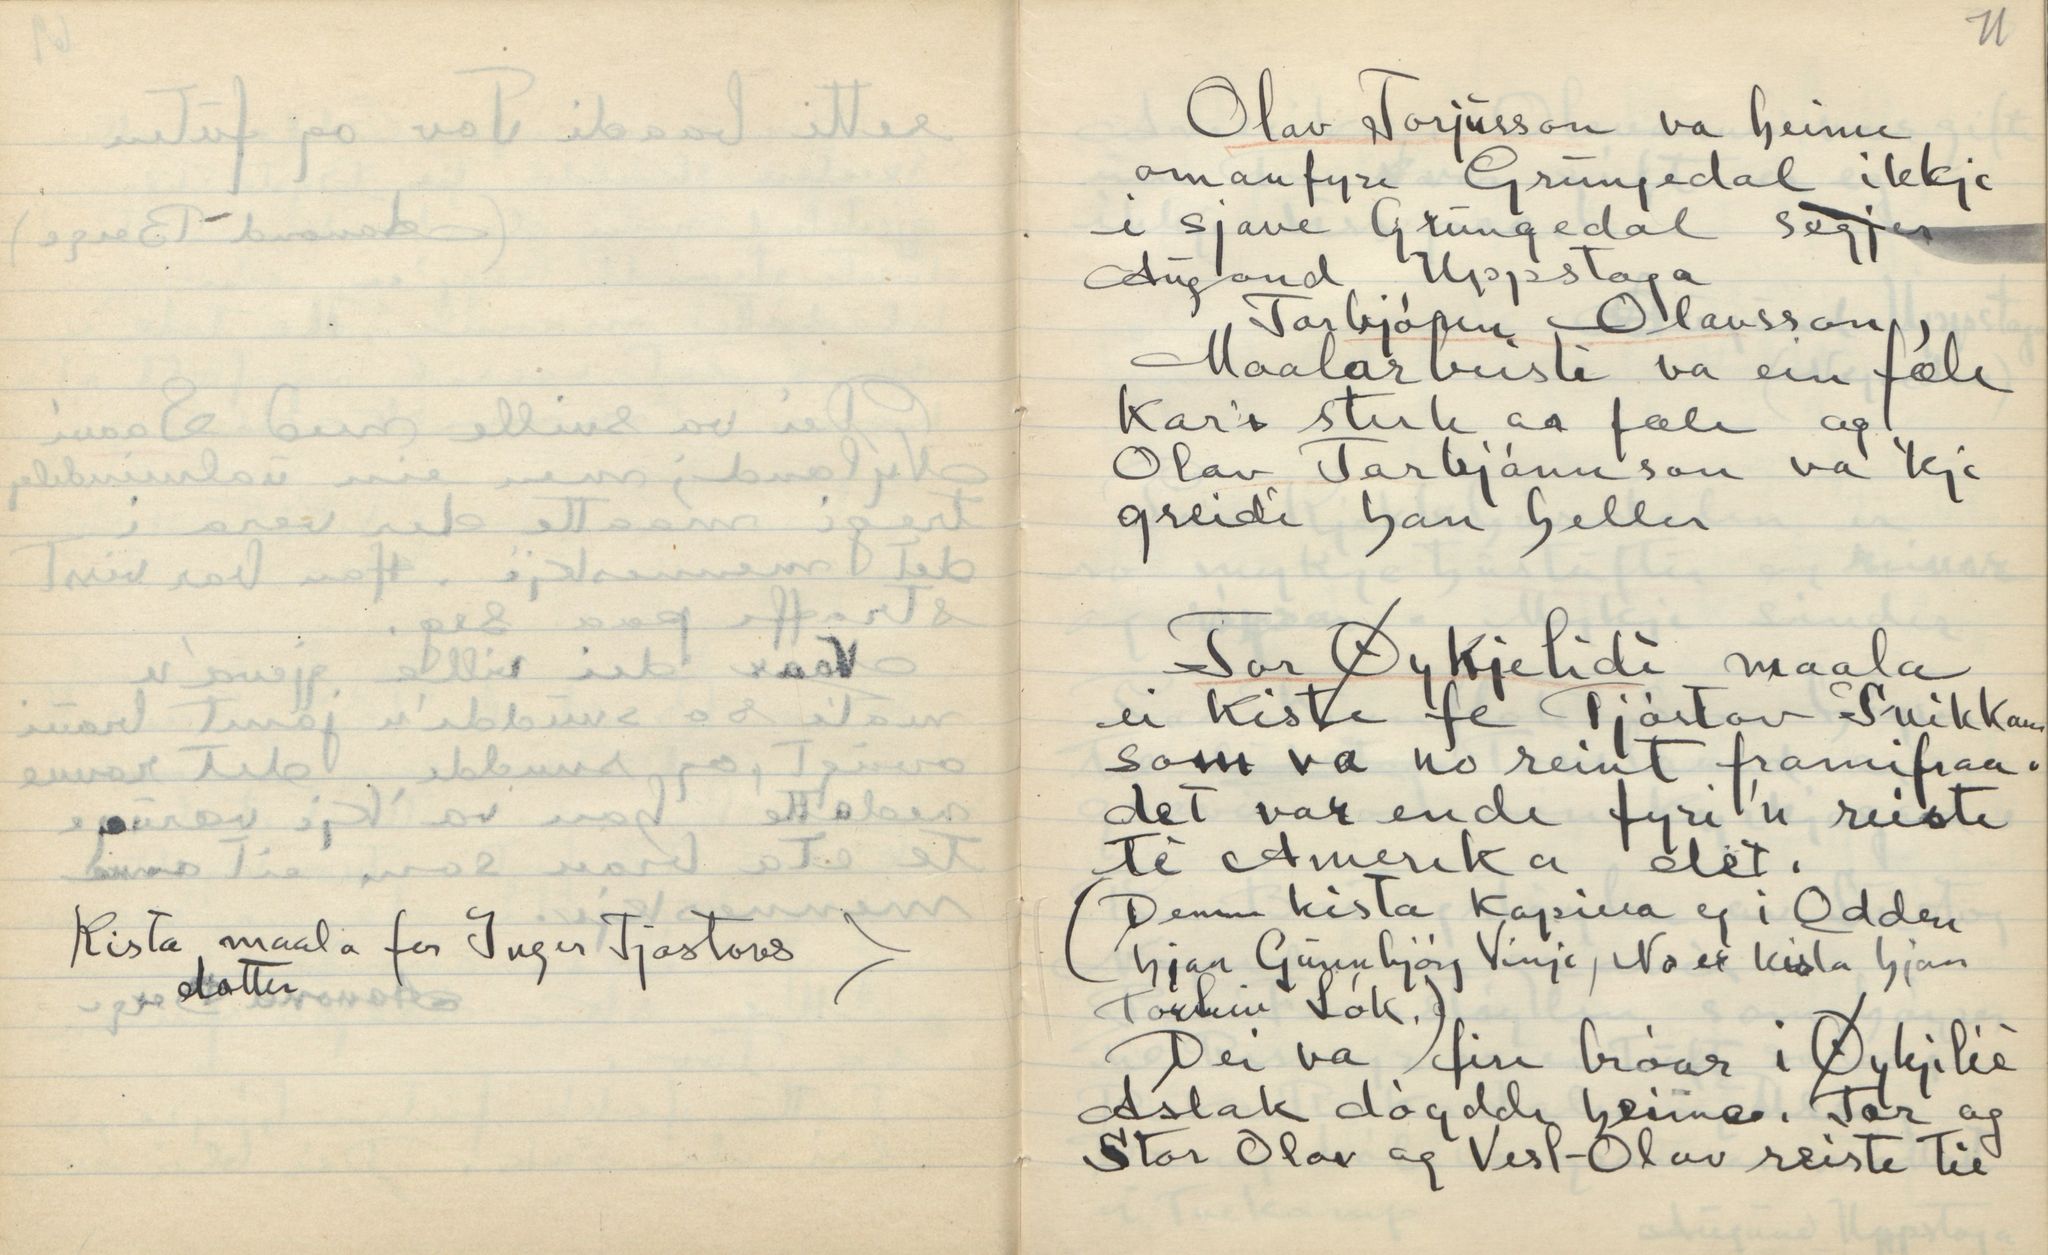 Kista maala for Inger Tjøstovs
dotter
71
Olav Torjusson va heime
omanfyre Grungedal ikkje
i sjave Grungedal segjer
Augond Uppstoga
Torbjónn Olavsson,
Maalarbeisti va ein fæle
kar's sterk aa fæle og
Olav Torbjónnson va 'kje
greidi han heller
Tor Øykjelidi maala
ei kiste fe Tjóstov Snikkar
som va no reint framifraa.
det var ende fyri'n reiste
te Amerika det.
(Denne kista kapiera eg i Odden
hjaa Gunnbjörg Vinje, No er kista hjaa
Lók.)
Dei va fire bróar i Øykjilíè
Aslak dógdde heime. Tor og
Stor Olav og Vesl-Olav reiste tie